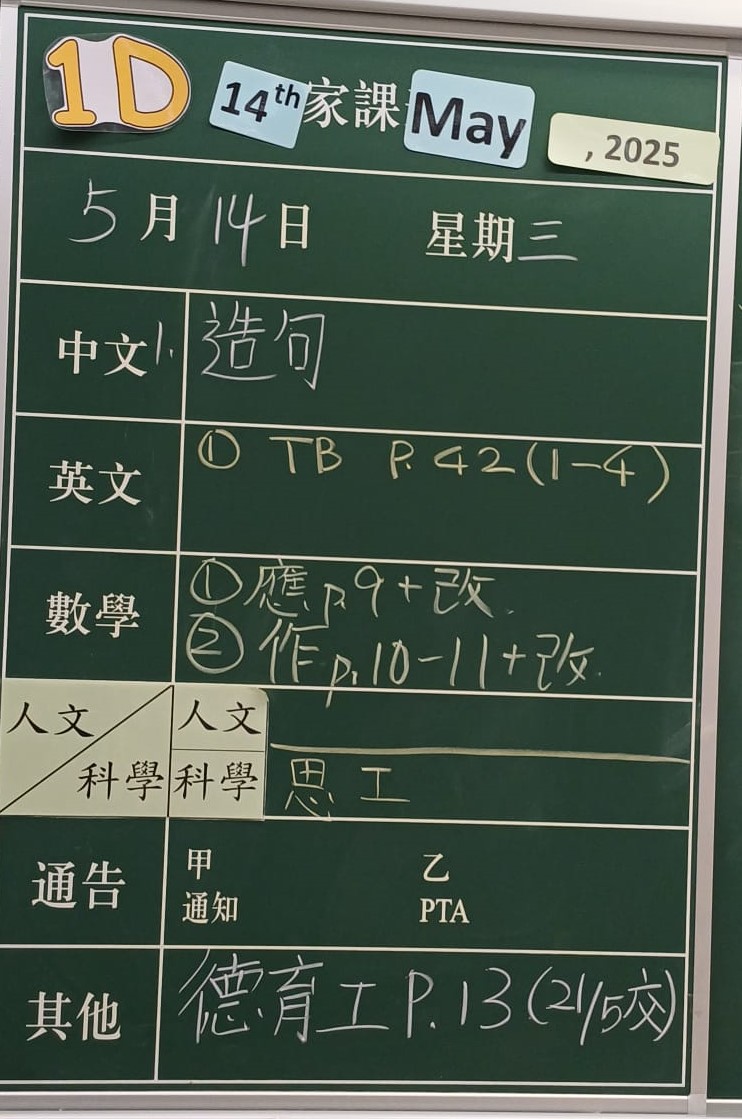 1D 14th 家課 May , 2025
5月14日 星期三
中文 1. 造句
英文 ① TB P.42(1-4)
數學 ① 應p.9+改.
② 作p.10-11+改.
人文 人文
科學 科學 思工
通告 甲 乙
通知 PTA
其他 德育工P.13(21/5交)